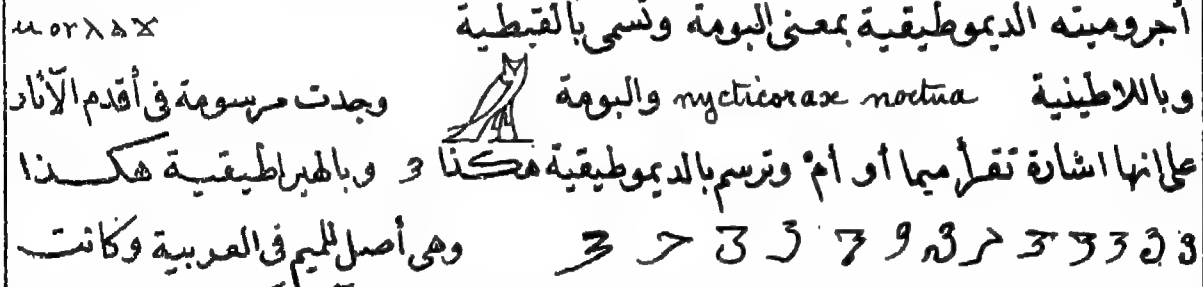 أجروميته الديموطيقية بمعنى البومة وتسمى بالقبطية
وباللاطينية nycticorax noctua والبومة وجدت مرسومة فى أقدم الآثار
على انها اشارة تقرأ ميما أو أم وترسم بالديموطيقية هكذا 3 وبالهيراطيقية هكذا
وهى أصل للميم فى العربية وكانت